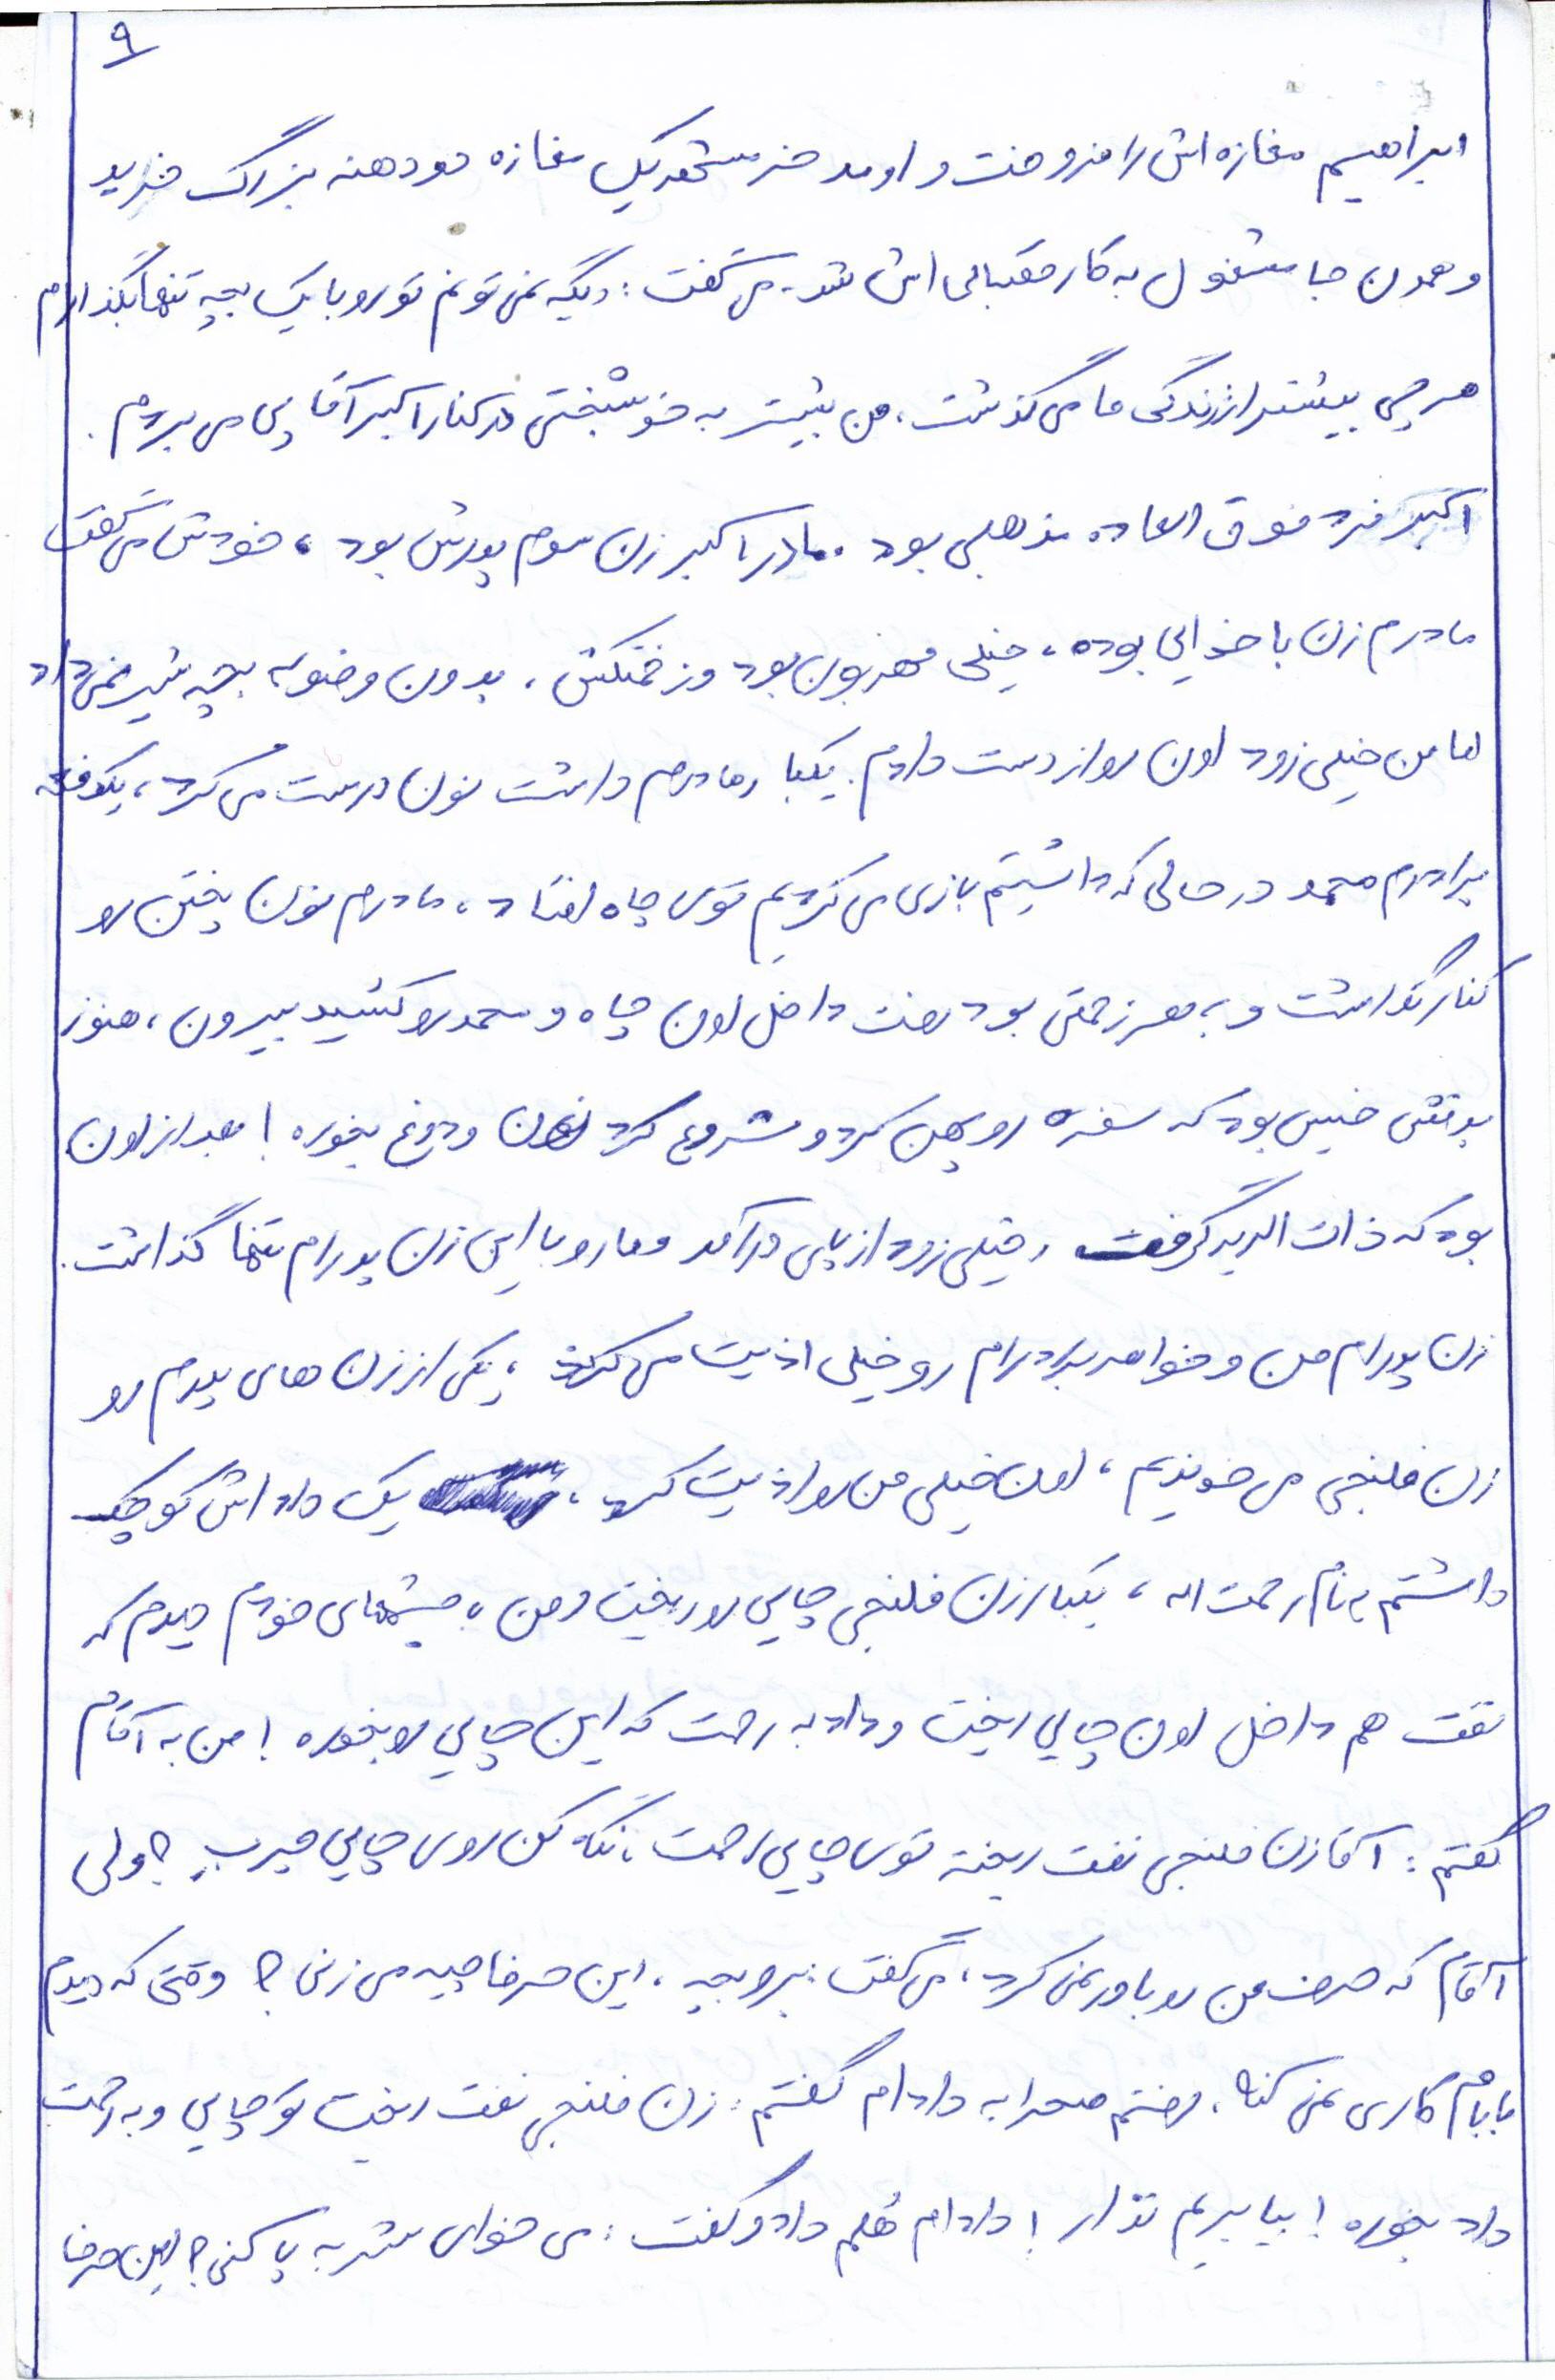 ۹
ابراهیم مغازه اش را فروخت و اومد خرمشهر یک مغازه دو دهنه بزرگ خرید
و همون جا مشغول به کار قنبالی اش شد. می گفت: دیگه نمی تونم تو رو با یک بچه تنها بگذارم
هر چی بیشتر از زندگی ما می گذشت، من بیشتر به خوشبختی در کنار اکبر آقا پی می بردم.
اکبر فرد فوق العاده مذهبی بود. مادر اکبر زن سوم پدرش بود، خودش می گفت
مادرم زن با خدایی بوده، خیلی مهربون بود و زحمتکش، بدون وضو به بچه شیر نمی داد
اما من خیلی زود اون رو از دست دادم. یکبار مادرم داشت نون درست می کرد، یکدفعه
برادرم محمد در حالی که داشتیم بازی می کردیم توی چاه افتاد، مادرم نون پختن رو
کنار گذاشت و به هر زحمتی بود رفت داخل اون چاه و محمد رو کشید بیرون، هنوز
بدنش خیس بود که سفره رو پهن کرد و شروع کرد نون و دوغ بخوره! بعد از اون
بود که ذات الریه گرفت و خیلی زود از پای درآمد و ما رو با این زن پدرام تنها گذاشت.
زن پدرام من و خواهر برادرام رو خیلی اذیت می کردند، یکی از زن های پدرم رو
زن فلنجی می خوندیم، اون خیلی من رو اذیت کرد، یک داداش کوچک
داشتم به نام رحمت اله، یکبار زن فلنجی چایی رو ریخت و من با چشمهای خودم دیدم که
نفت هم داخل اون چایی ریخت و داد به رحمت که این چایی رو بخوره! من به آقام
گفتم: آقا زن فلنجی نفت ریخته توی چایی رحمت، نگاه کن روی چایی چربِ؟ ولی
آقام که حرف من رو باور نمی کرد، می گفت: برو بچه، این حرفا چیه می زنی؟ وقتی که دیدم
بابام کاری نمی کنه، رفتم صحرا به دادام گفتم: زن فلنجی نفت ریخت تو چایی و به رحمت
داد بخوره! بیا بریم نذار! دادام هُلم داد و گفت: می خوای شر به پا کنی؟ این حرفا